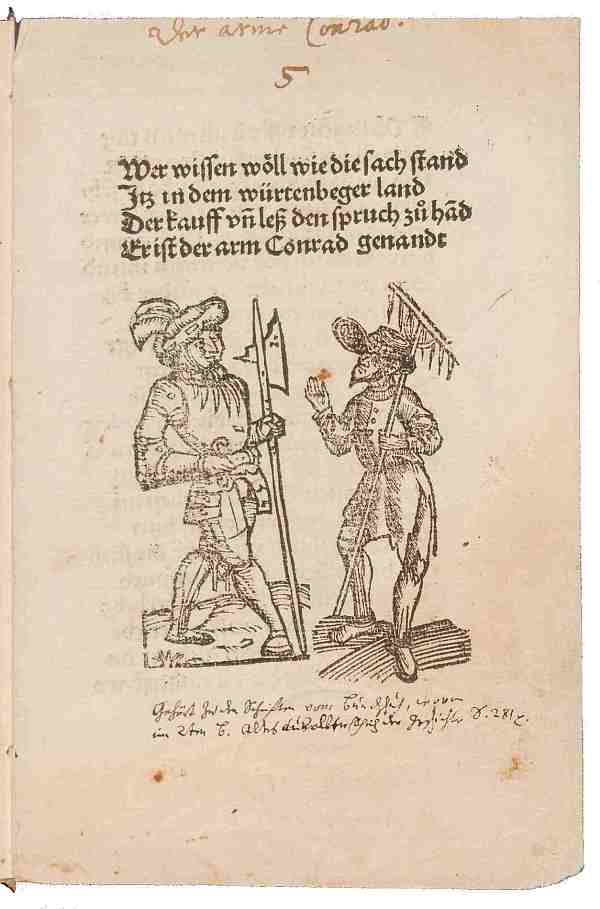 Der arme Conrad.
5
Wer wissen wöll wie die sach stand
Itz in dem würtenbeger land
Der kauff vñ leß den spruch zů hãd
Er ist der arm Conrad genandt
Gehört zu den Schriften vom Bundschuh, wovon
im 2ten B. der Geschichte S. 281